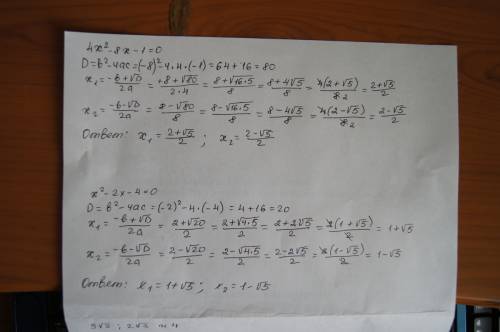 4x²-8x-1=0
D=b²-4ac=(-8)²-4·4·(-1)=64+16=80
x₁=(-b+√D)/2a=(+8+√80)/(2·4)=(8+√(16·5))/8=(8+4√5)/8=4(2+√5)/8 2=(2+√5)/2
x₂=(-b-√D)/2a=(8-√80)/8=(8-√(16·5))/8=(8-4√5)/8=4(2-√5)/8 2=(2-√5)/2
Ответ: x₁=(2+√5)/2; x₂=(2-√5)/2
x²-2x-4=0
D=b²-4ac=(-2)²-4·(-4)=4+16=20
x₁=(-b+√D)/2a=(2+√20)/2=(2+√(4·5))/2=(2+2√5)/2=2(1+√5)/2=1+√5
x₂=(-b-√D)/2a=(2-√20)/2=(2-√(4·5))/2=(2-2√5)/2=2(1-√5)/2=1-√5
Ответ: x₁=1+√5; x₂=1-√5